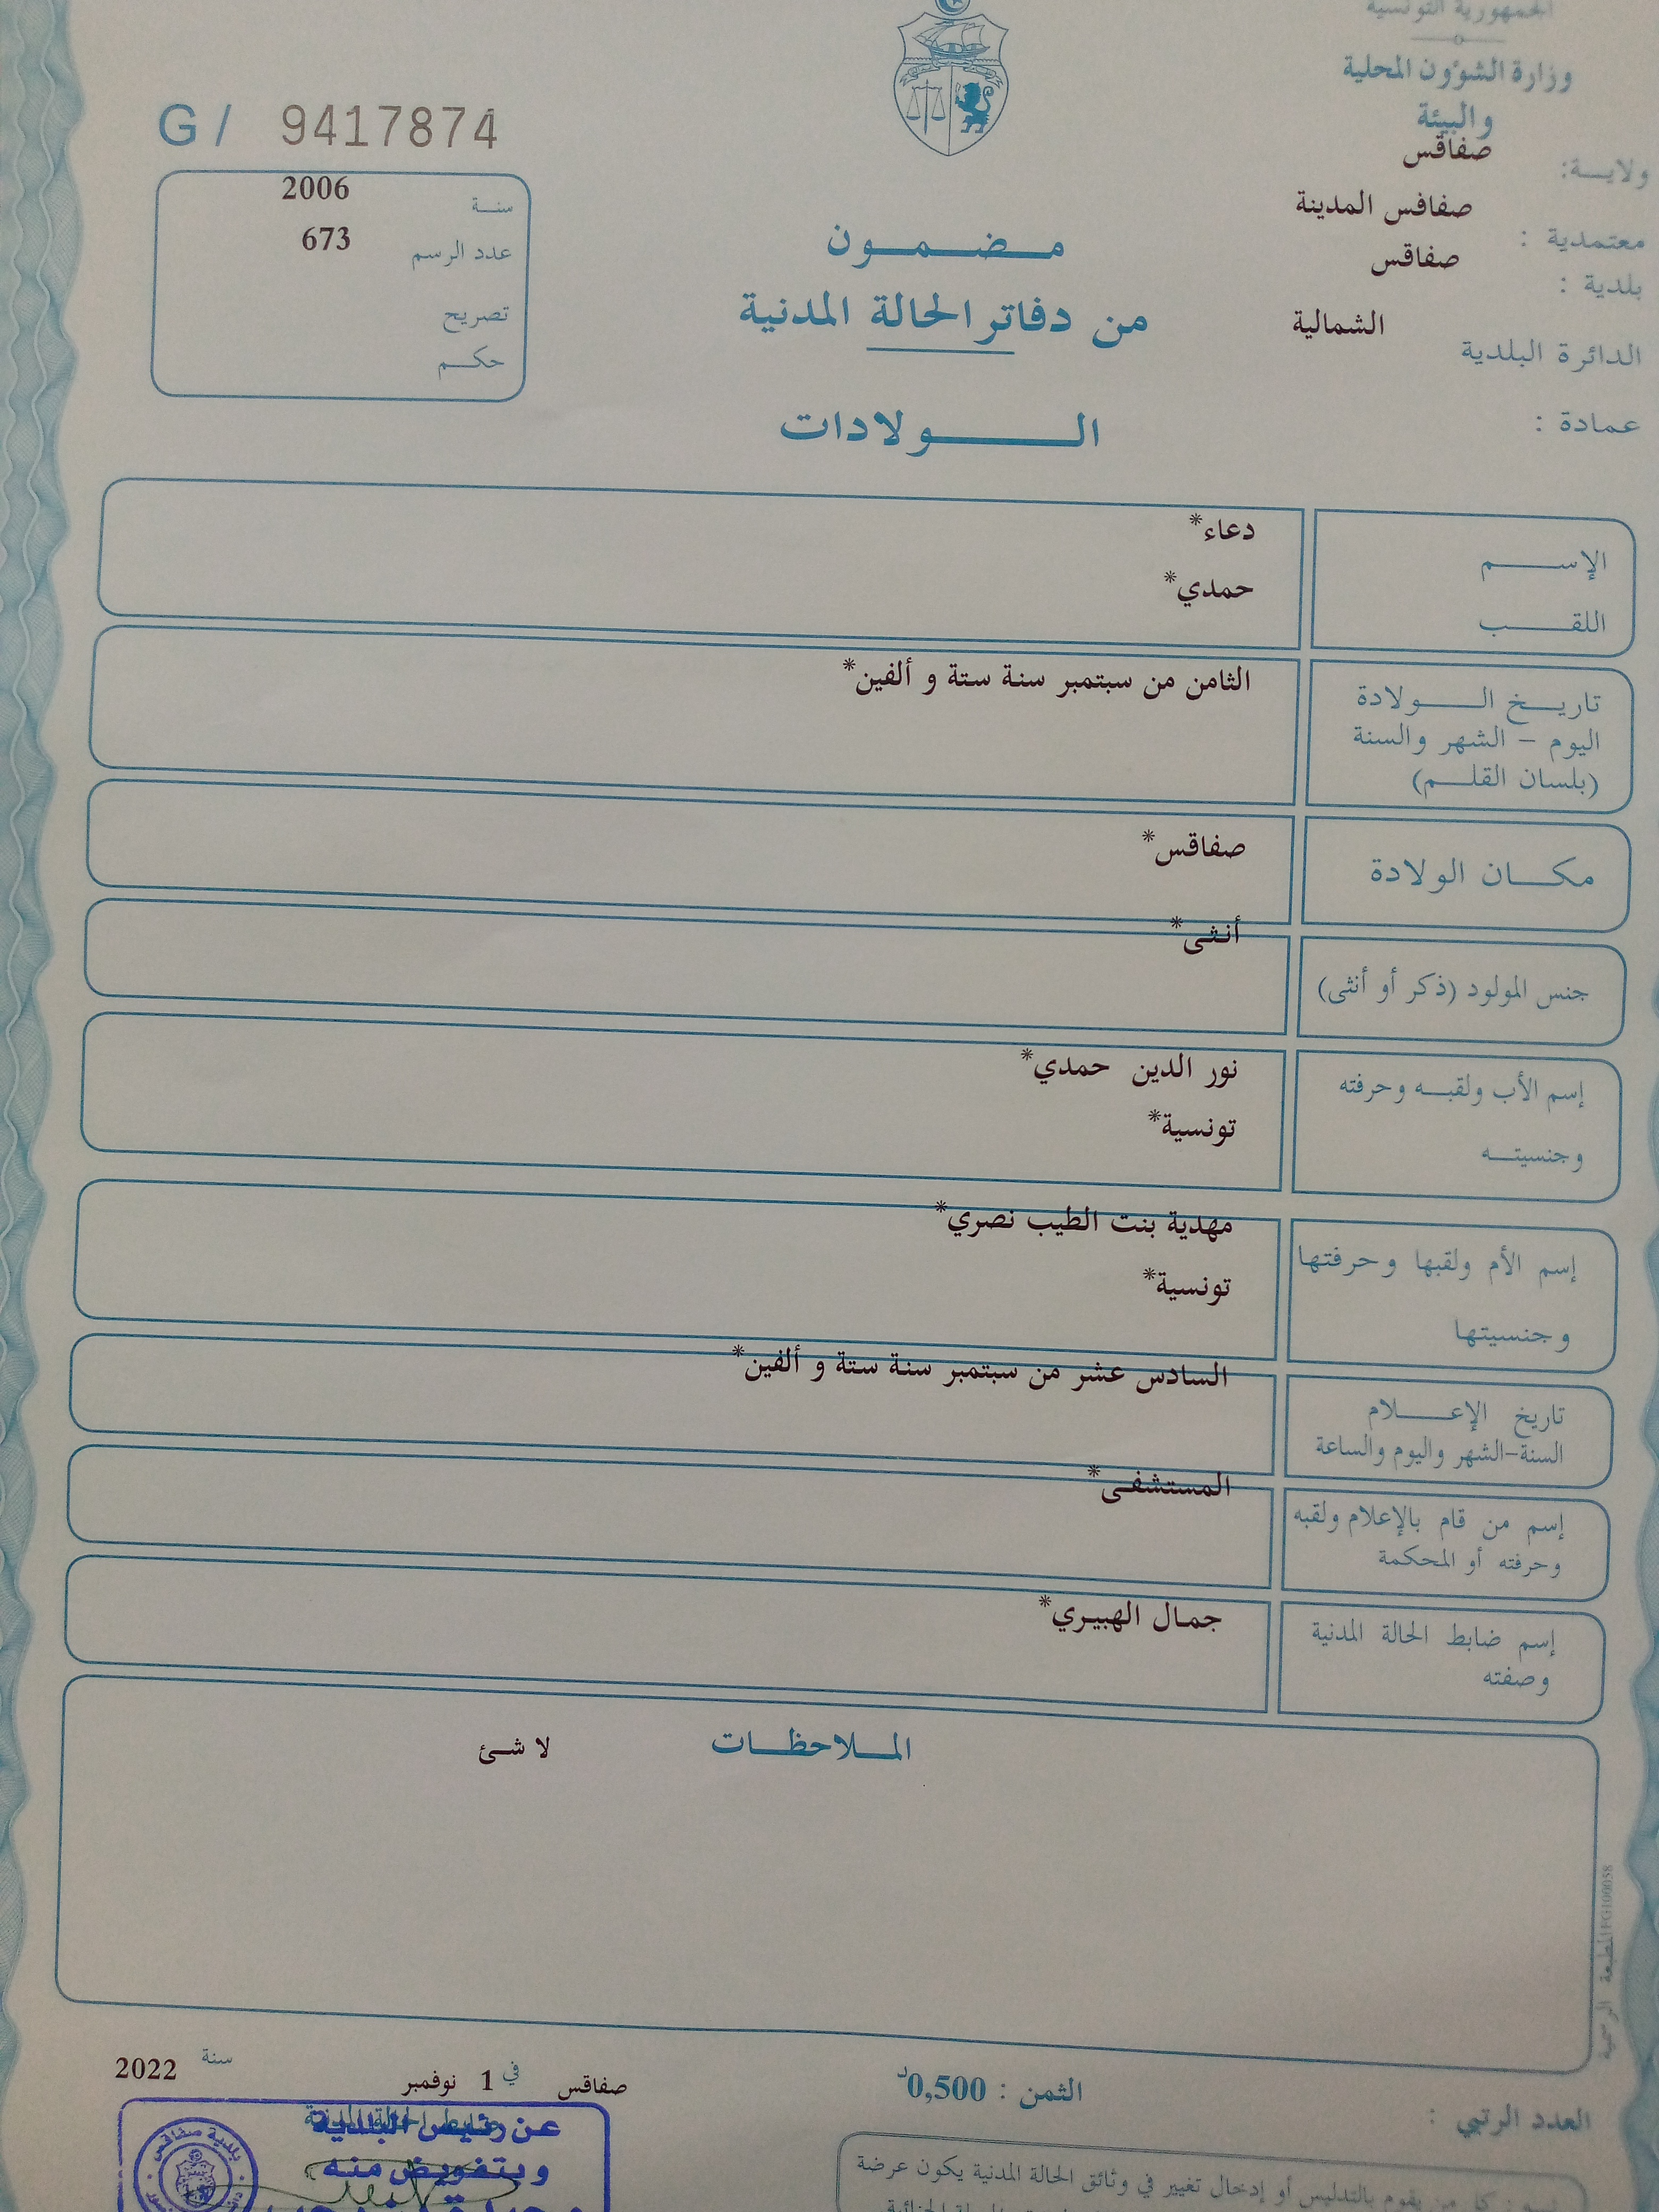 الجمهورية التونسية
وزارة الشؤون المحلية
والبيئة
ولايـــة: صفاقس
معتمدية : صفاقس المدينة
بلدية : صفاقس
الدائرة البلدية الشمالية
عمادة :
G/ 9417874
سنــة 2006
عدد الرسم 673
تصريح
حكـــم
مـــضـــمـــون
من دفاتر الحالة المدنية
الــــــولادات
الإســـــم دعاء*
اللقـــــب حمدي*
تاريـــخ الــــولادة الثامن من سبتمبر سنة ستة و ألفين*
اليوم - الشهر والسنة
(بلسان القلـــم)
مكـــان الولادة صفاقس*
جنس المولود (ذكر أو أنثى) أنثى*
إسم الأب ولقبــه وحرفته نور الدين حمدي*
وجنسيتــه تونسية*
إسم الأم ولقبها وحرفتها مهدية بنت الطيب نصري*
وجنسيتها تونسية*
تاريخ الإعـــــلام السادس عشر من سبتمبر سنة ستة و ألفين*
السنة-الشهر واليوم والساعة
إسم من قام بالإعلام ولقبه المستشفى*
وحرفته أو المحكمة
إسم ضابط الحالة المدنية جمال الهبيري*
وصفته
المـــلاحظـــات لا شئ
المطبعة الرسمية FG100058
صفاقس في 1 نوفمبر سنة 2022
الثمن : 0,500د
العدد الرتبي :
ضابط الحالة المدنية
عن رئيس البلدية
وبتفويض منه
بلدية صفاقس
كل من يقوم بالتدليس أو إدخال تغيير في وثائق الحالة المدنية يكون عرضة